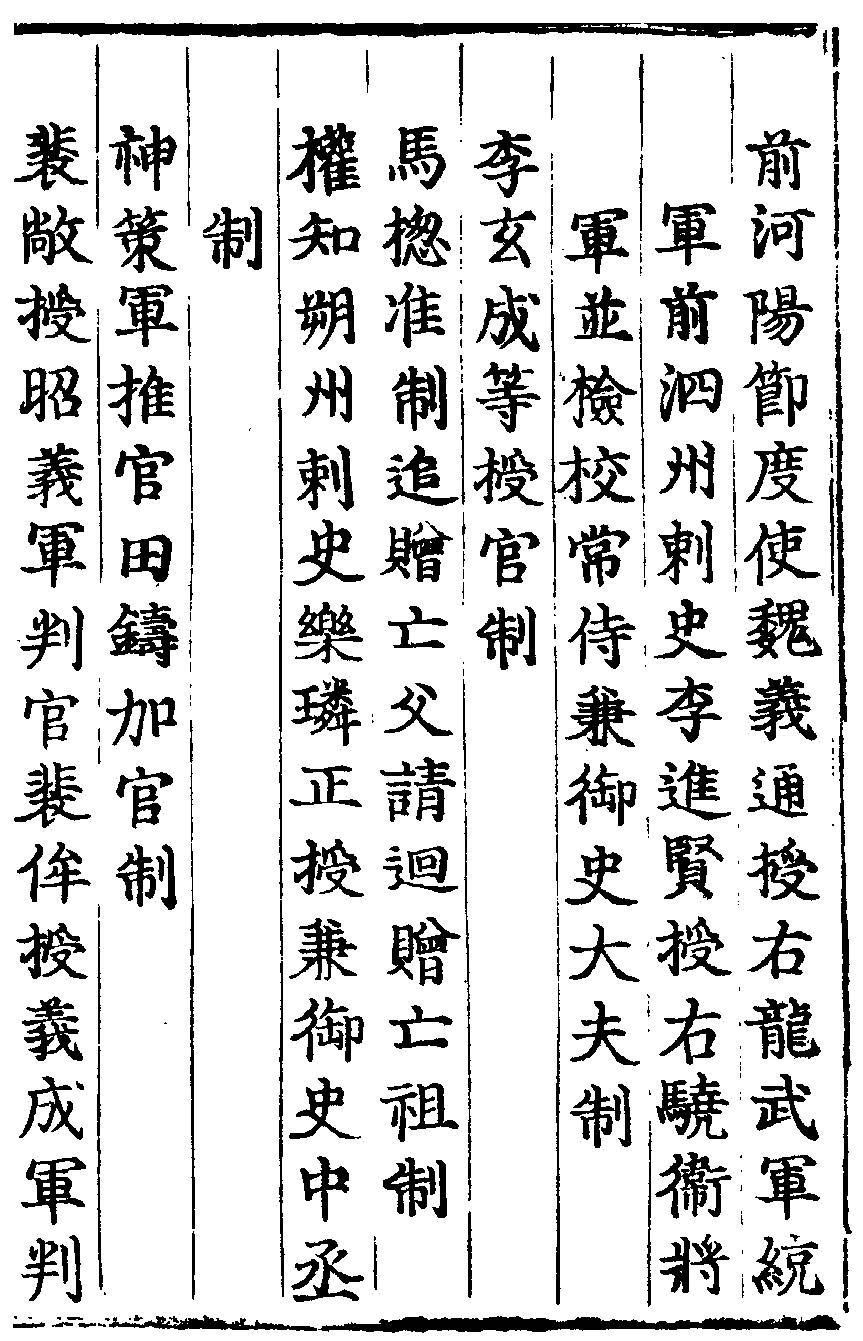 前河陽節度使魏義通授右龍武軍統
軍前泗州刺史李進賢授右驍衛將
軍並檢校常侍兼御史大夫制
李玄成等授官制
馬揔准制追贈亡父請迴贈亡祖制
權知朔州刺史樂璘正授兼御史中丞
制
神策軍推官田鑄加官制
裴敞授昭義軍判官裴侔授義成軍判